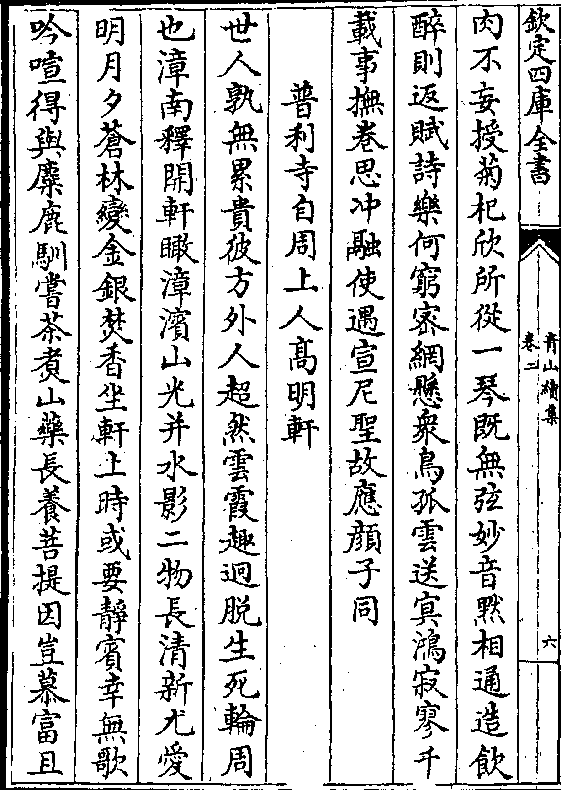 欽定四庫全書
青山續集
卷二
六
肉不妄授菊杞欣所從一琴既無弦妙音黙相通造飲
醉則返賦詩樂何窮宻網懸衆鳥孤雲送㝠鴻寂寥千
載事撫卷思冲融使遇宣尼聖故應顔子同
普利寺自周上人髙明軒
世人孰無累貴彼方外人超然雲霞趣迥脱生死輪周
也漳南釋開軒瞰漳濱山光并水影二物長清新尤愛
明月夕蒼林變金銀焚香坐軒上時或要靜賓幸無歌
吟喧得與麋鹿馴嘗茶煮山藥長養菩提因豈慕富且